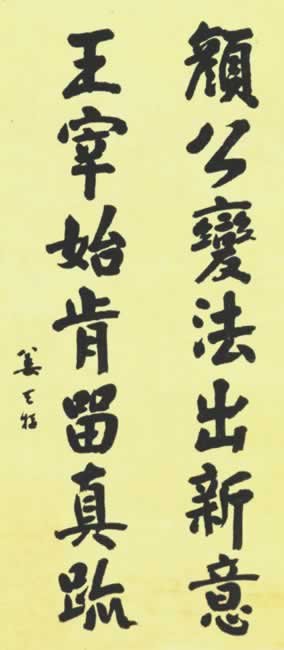 顏公變法出新意
王宰始肯留真跡
姜